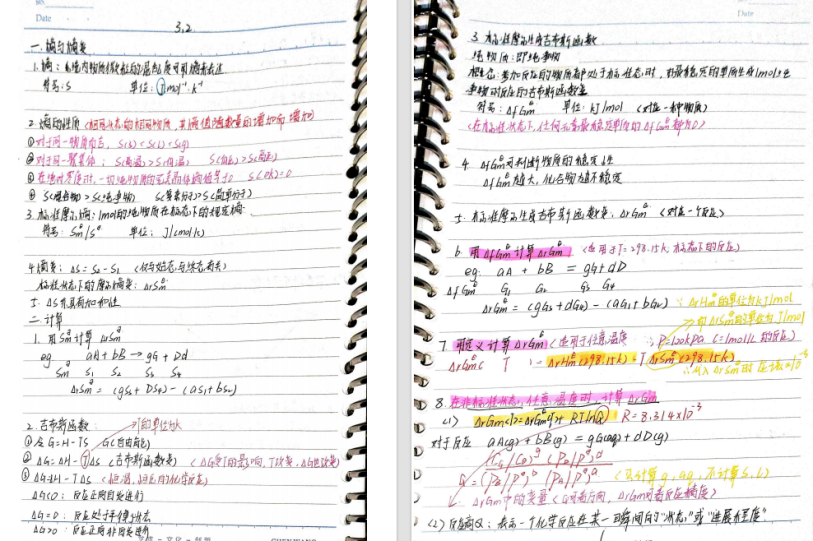 Date
3.2
一.熵与熵变
1.熵:体系内物质微粒的混乱度可用熵来表述
符号:S 单位:J·mol⁻¹·k⁻¹
2.熵的性质(相同状态的相同物质,其熵值随数量的增加而增加)
①对于同一物质而言,S(s)<S(l)<S(g)
②对于同一聚集体:S(高温)>S(低温) S(低压)>S(高压)
③在绝对零度时,一切纯物质的完美晶体熵值等于0 S(0k)=0
④S(混合物)>S(纯净物) S(复杂分子)>S(简单分子)
3.标准摩尔熵:1mol的纯物质在标态下的规定熵
符号:Smθ/Sθ 单位:J/(mol/k)
4.熵变:ΔS=S₂-S₁(仅与始态与终态有关)
标准状态下的摩尔熵变:ΔrSmθ
5.ΔS具有加和性
二.计算
1.用Smθ计算ΔrSmθ
eg aA+bB→gG+Dd
Smθ S₁ S₂ S₃ S₄
ΔrSmθ=(gS₃+DS₄)-(aS₁+bS₂)
2.吉布斯函数 T的单位为k
①G=H-TS G(自由能)
②ΔG=ΔH-TΔS(吉布斯函数变)(ΔG受T的影响,T改变,ΔG也改变)
③ΔG=H-TΔS(恒温,恒压的化学反应)
ΔG<0:反应正向自发进行
ΔG=0:反应处于平衡状态
ΔG>0:反应正向非自发进行
Date
3.标准摩尔生成吉布斯函数
纯物质:即纯净物
概念:参加反应的物质都处于标准态时,由最稳定的单质生成1mol纯
净物时反应的吉布斯函数变
符号:ΔfGmθ 单位:kJ/mol(对应一种物质)
(在标准状态下,任何元素最稳定单质的ΔfGmθ都为0)
4.ΔfGmθ可判断物质的稳定性
ΔfGmθ越大,化合物越不稳定
5.标准摩尔生成吉布斯函数变:ΔrGmθ(对应一个反应)
6.用ΔfGmθ计算ΔrGmθ(适用于T=298.15k,标准态下的反应)
eg. aA+bB=gG+dD
ΔfGmθ G₁ G₂ G₃ G₄
ΔrGmθ=(gG₃+dG₄)-(aG₁+bG₂)
∵ΔrHmθ的单位为kJ/mol
而ΔrSmθ的单位为J/mol
7.用定义计算ΔrGmθ(适用于任意温度 P=100kPa C=1mol/L的反应)
ΔrGmθ(T)=ΔrHmθ(298.15k)-TΔrSmθ(298.15k)
∴代入ΔrSmθ时应该×10⁻³
8.在非标准状态,任意温度时,计算ΔrGm
(1)ΔrGm(T)=ΔrGmθ(T)+RTlnQ R=8.314×10⁻³
对于反应 aA(g)+bB(g)=gG(aq)+dD(g)
Q=(CG/Cθ)g(PD/Pθ)d/(PA/Pθ)a(PB/Pθ)b(只计算g,aq,不计算s,l)
ΔrGm中的变量
(2)反应商Q:表示一个化学反应在某一瞬间的“状态”或“进展程度”